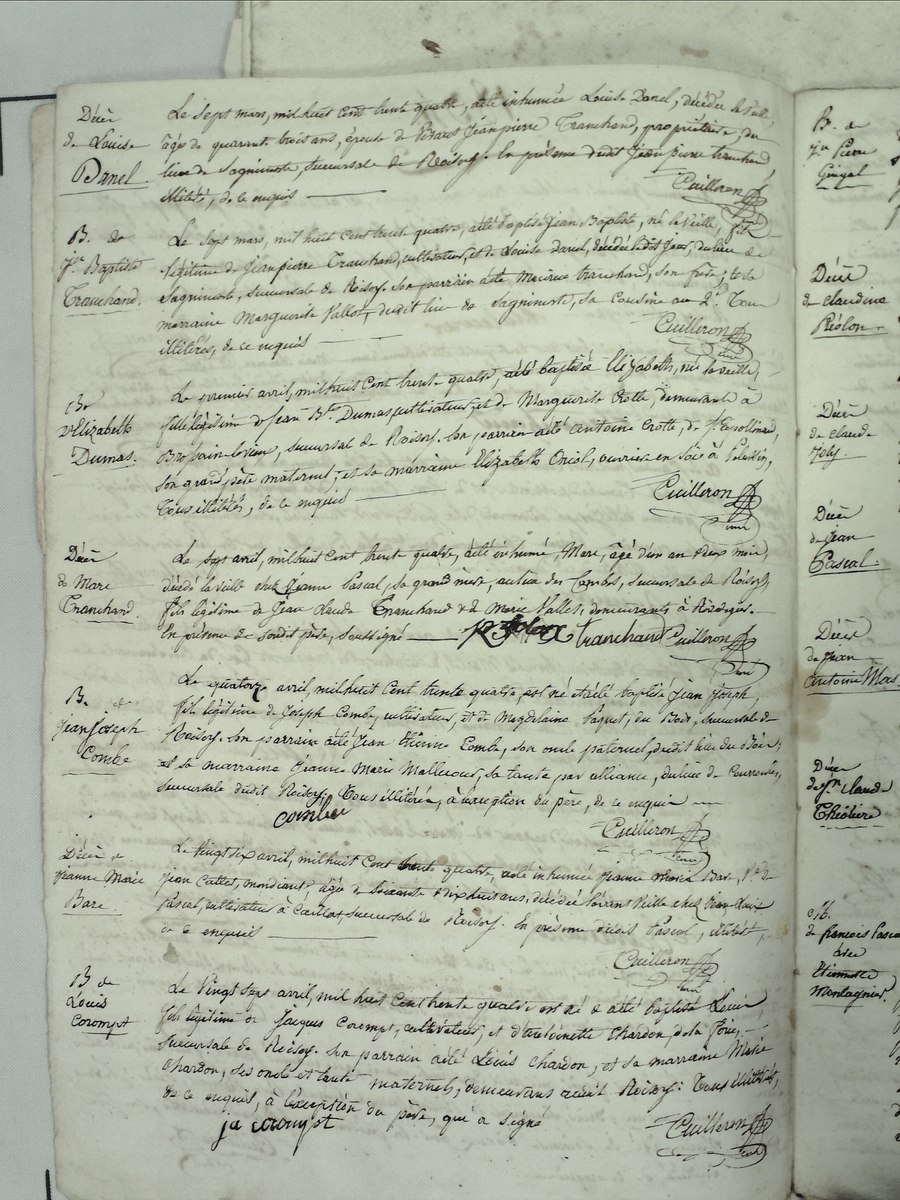 Décès
de Louise
Danel
Le sept mars, mil huit cent trente quatre, a été inhumée Louise Danel, décédée la veille,
âgée de quarante trois ans, épouse de vivant Jean pierre Tranchand, propriétaire, du
lieu de Sagnimorte, succursale de Roisey. En présence dudit Jean pierre tranchand
illitéré, de ce enquis
Cuilleron
curé
B. de
Jn Baptiste
Tranchand.
Le sept mars, mil huit cent trente quatre, a été baptisé Jean Baptiste, né la veille, fils
légitime de Jean pierre Tranchand, cultivateur, et de Louise Danel, décédée le dit jour, du lieu de
Sagnimorte, succursale de Roisey. Son parrain a été tranchand, son frère; et sa
marraine Marguerite Vallot, dudit lieu de Sagnimorte, sa cousine au 2d. Tous
illitérés, de ce enquis
Cuilleron
curé
B.
d'Elizabeth
Dumas.
Le premier avril, mil huit cent trente quatre, a été baptisée Elizabeth, née la veille,
fille légitime de Jean Bte Dumas, cultivateur, et de Marguerite Crotte, demeurants à
succursale de Roisey. Son parrain a été antoine Crotte, de
son grand père maternel; et sa marraine Elizabeth Oriol, ouvrière en soie à Pelussin,
Tous illitérés, de ce enquis
Cuilleron
curé
Décès
de Marc
Tranchand.
Le sept avril, mil huit cent trente quatre, a été inhumé, Marc, âgé d'un an deux mois,
décédé la veille chez Jeanne Pascal, sa grand mère, au lieu des Combes, succursale de Roisey,
fils légitime de Jean Claude Tranchand & de Marie Vallet, demeurants à
En présence de sondit père, soussigné
tranchand Cuilleron
curé
B. de
Jean Joseph
Combe
Le quatorze avril, mil huit cent trente quatre, est né et a été baptisé Jean Joseph,
fils légitime de Joseph Combe, cultivateur, et de Magdelaine Paquet, du Bois, succursale de
Roisey. Son parrain a été Jean Etienne Combe, son oncle paternel, dudit lieu du Bois;
et sa marraine Jeanne Marie sa tante par alliance, du lieu de
succursale dudit Roisey. Tous illitérés, à l'exception du père, de ce enquis
combe
Cuilleron
curé
Décès de
Jeanne Marie
Bare.
Le vingt six avril, mil huit cent trente quatre, a été inhumée jeanne Marie Bare, Ve de
Jean Callet, mendiante, âgée de soixante & dix huit ans, décédée l'avant veille chez Jean Louis
Pascal, cultivateur à succursale de Roisey. En présence dudit Pascal, illitéré,
de ce enquis
Cuilleron
curé
B de
Louis
Corompt
Le vingt sept avril, mil huit cent trente quatre est né & a été baptisé Louis
fils légitime de Jacques Corompt, cultivateur, et d'antoinette Chardon, de
succursale de Roisey. Son parrain a été Louis Chardon, et sa marraine Marie
Chardon, ses oncle et tante maternels, demeurans audit Roisey: Tous illitérés,
de ce enquis, à l'exception du père, qui a signé
ja corompt
Cuilleron
curé
B. de
Jn Pierre
Décès
de Claudine
Réolon.
Décès
de claude
Joly.
Décès
de Jean
Pascal.
Décès
de Jean
antoine Mas
Décès
de Jn claude
Théoliere
M.
de francois Pascal
avec
Etiennette
Montagnier.